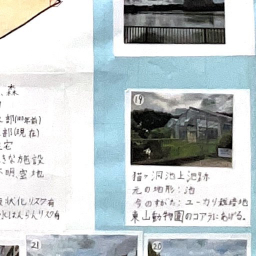 森
部(100年前)
部(現在)
宅
きな施設
不明、空地
状化リスク有
水はんらんリスク有
19
猫ヶ洞池上池跡
元の地形:池
今のすがた:ユーカリ栽培地
東山動物園のコアラにあげる。
21
20